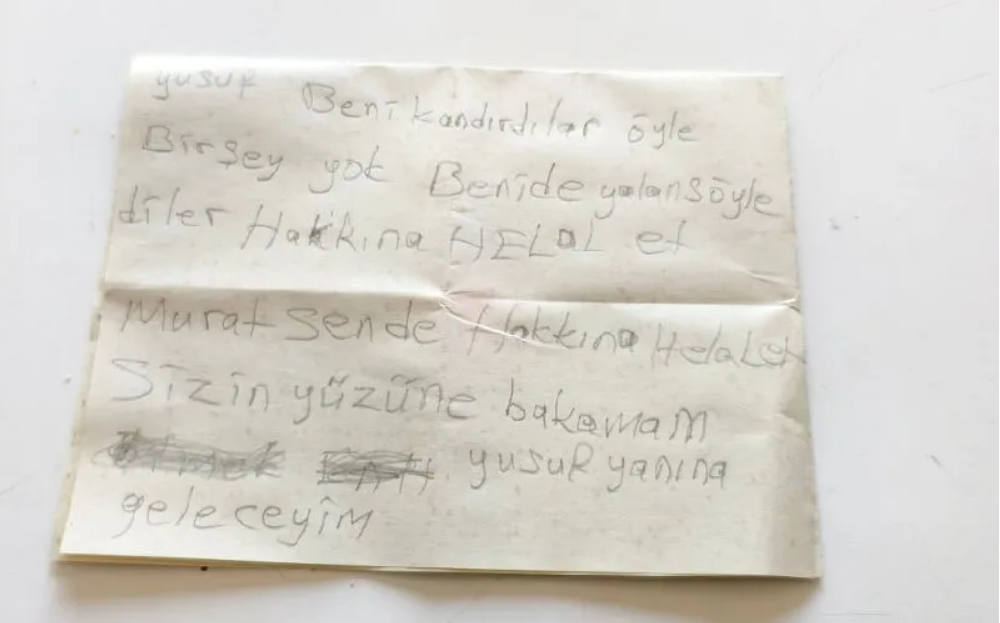 yusuf Beni kandırdılar öyle
Birşey yok Benide yalansöyle
diler Hakkına HELAL et
Murat sende Hakkına Helalet
Sizin yüzüne bakamam
yusuf yanına
geleceyim